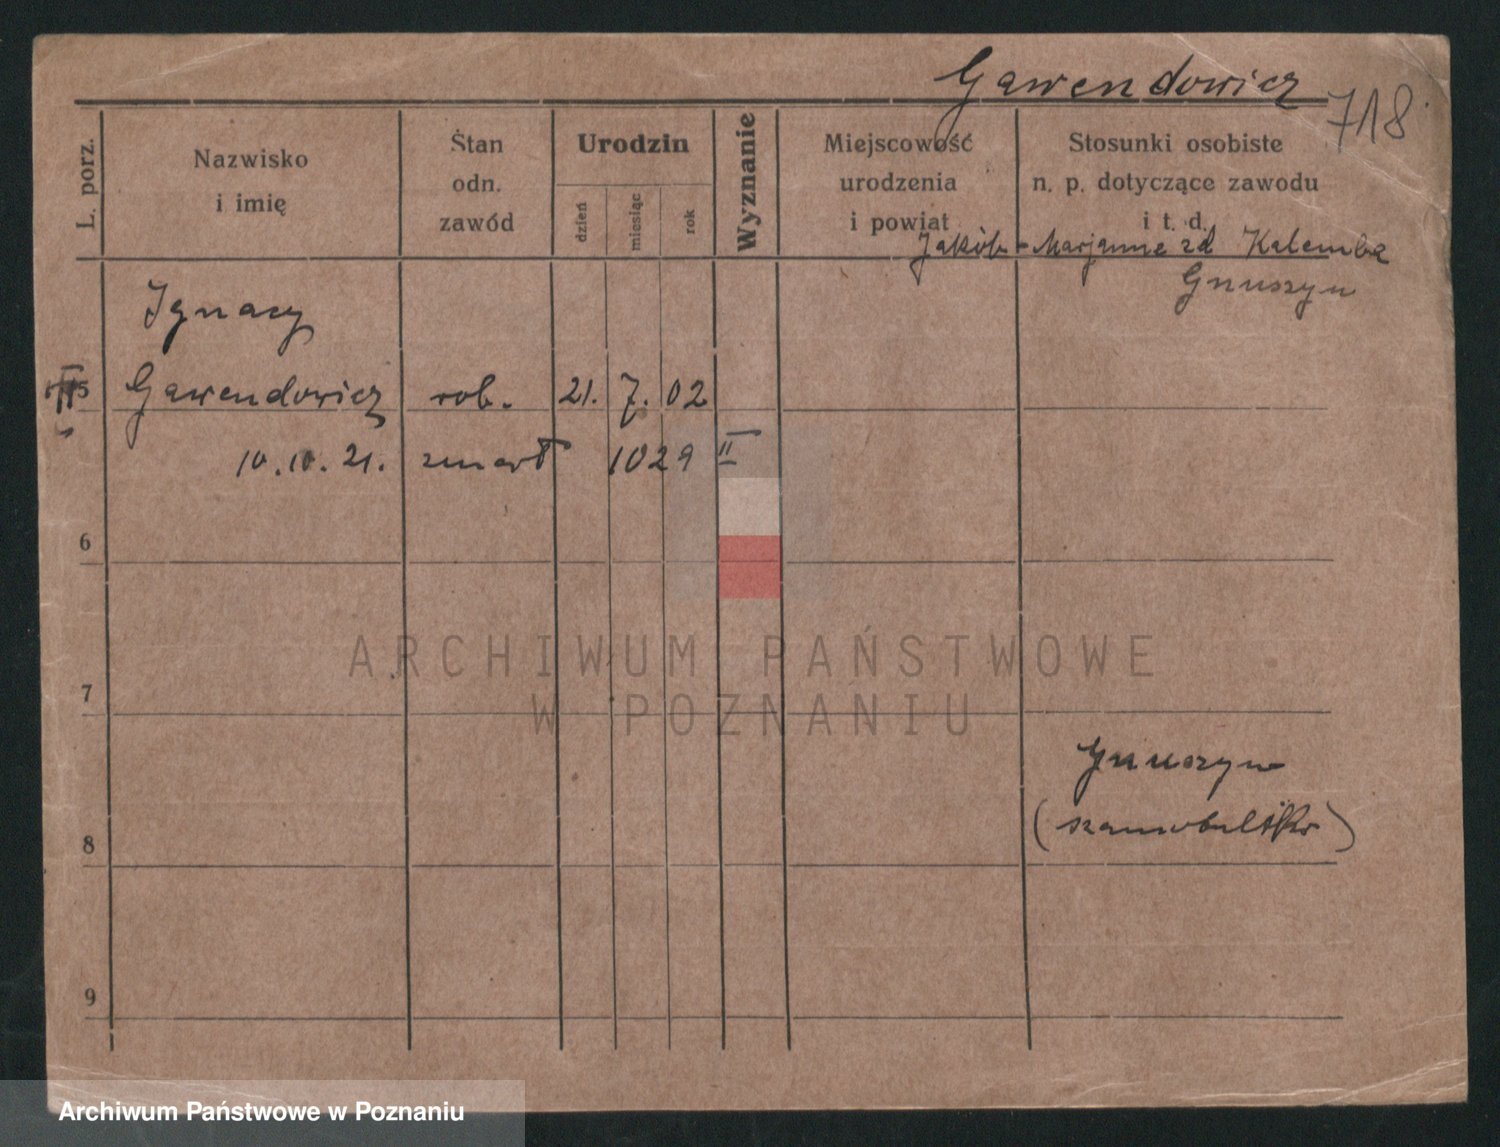 Gawendowicz
718
L. porz.
Nazwisko
i imię
Stan
odn.
zawód
Urodzin
dzień
miesiąc
rok
Wyznanie
Miejscowość
urodzenia
i powiat
Stosunki osobiste
n. p. dotyczące zawodu
i t. d.
Jakób - Marjanne zd Kalemba
Gnuszyn
Ignacy
5 Gawendowicz rob. 21. 7. 02
10.10.21. zmarł 1029 II
6
ARCHIWUM PAŃSTWOWE
W POZNANIU
7
Gnuszyn
8
9
Archiwum Państwowe w Poznaniu